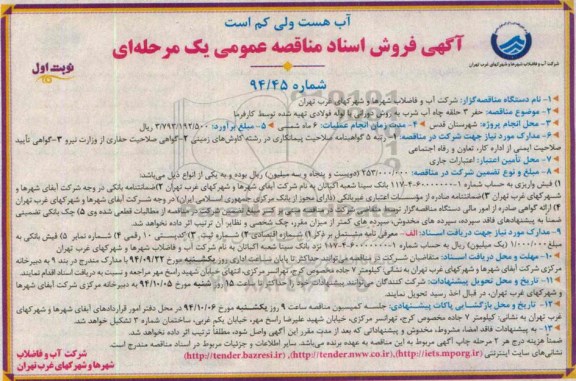 آب هست ولی کم است
آگهی فروش اسناد مناقصه عمومی یک مرحله‌ای
نوبت اول
شرکت آب و فاضلاب شهرها و شهرکهای غرب تهران
شماره ۹۴/۴۵
۱- نام دستگاه مناقصه‌گزار: شرکت آب و فاضلاب شهرها و شهرکهای غرب تهران
۲- موضوع مناقصه: حفر ۳ حلقه چاه آب شرب به روش دورانی با لوله فولادی تهیه شده توسط کارفرما
۳- محل انجام پروژه: شهرستان قدس ۴- مدت زمان انجام عملیات: ۶ ماه شمسی ۵- مبلغ برآورد: ۳/۷۹۲/۱۹۲/۵۰۰ ریال
۶- مدارک مورد نیاز جهت شرکت در مناقصه: ۱- رتبه ۵ گواهینامه صلاحیت پیمانکاری در رشته کاوش‌های زمینی ۲- گواهی صلاحیت حفاری از وزارت نیرو ۳- گواهی تأیید
صلاحیت ایمنی از اداره کار، تعاون و رفاه اجتماعی
۷- محل تأمین اعتبار: اعتبارات جاری
۸- مبلغ و نوع تضمین شرکت در مناقصه: ۲۵۳/۰۰۰/۰۰۰ (دویست و پنجاه و سه میلیون) ریال بوده و به یکی از انواع ذیل می‌باشد:
۱) فیش واریزی به حساب شماره بانک سینا شعبه اکباتان به نام شرکت آبفای شهرها و شهرکهای غرب تهران ۲) ضمانتنامه بانکی در وجه شرکت آبفای شهرها و
شهرکهای غرب تهران ۳) ضمانتنامه صادره از مؤسسات اعتباری غیربانکی (دارای مجوز از بانک مرکزی جمهوری اسلامی ایران) در وجه شرکت آبفای شهرها و شهرکهای غرب تهران
۴) ارائه گواهی صادره از امور مالی دستگاه مناقصه‌گزار شرکت در مناقصه از مطالبات قطعی شده وی ۵) چک بانکی تضمینی
ضمناً به پیشنهادهای فاقد سپرده، سپرده های مخدوش، سپرده های کمتر از میزان مقرر، چک شخصی و نظایر آن ترتیب اثر داده نخواهد شد.
۹- مدارک مورد نیاز جهت دریافت اسناد: الف- معرفی نامه
۱/۰۰۰/۰۰۰ (یک میلیون) ریال به حساب شماره نزد بانک سینا شعبه اکباتان به نام شرکت آب و فاضلاب شهرها و شهرکهای غرب تهران
۱۰- مهلت و محل دریافت اسناد: متقاضیان شرکت در مناقصه می‌توانند حداکثر تا پایان ساعت اداری روز یکشنبه مورخ ۹۴/۰۹/۲۲ با مدارک مندرج در بند ۹ به دبیرخانه
مرکزی شرکت آبفای شهرها و شهرکهای غرب تهران به نشانی: کیلومتر ۷ جاده مخصوص کرج، تهرانسر مرکزی، انتهای خیابان شهید راسخ مهر مراجعه و نسبت به دریافت اسناد اقدام نمایند.
۱۱- تاریخ و محل تحویل پیشنهادات: شرکت کنندگان می‌توانند پیشنهادات خود را حداکثر تا ساعت ۱۵ روز شنبه مورخ ۹۴/۱۰/۰۵ به دبیرخانه مرکزی شرکت آبفای شهرها
و شهرکهای غرب تهران، در قبال اخذ رسید تحویل نمایند.
۱۲- تاریخ و محل بازگشایی پاکات پیشنهادی: جلسه کمیسیون مناقصه ساعت ۹ روز یکشنبه مورخ ۹۴/۱۰/۰۶ در محل دفتر امور قراردادهای آبفای شهرها و شهرکهای
غرب تهران به نشانی: کیلومتر ۷ جاده مخصوص کرج، تهرانسر مرکزی، خیابان شهید علیرضا راسخ مهر، خیابان یکم غربی، ساختمان شماره ۳ تشکیل خواهد شد.
۱۳- به پیشنهادات فاقد امضا، مشروط، مخدوش و پیشنهاداتی که بعد از مدت مقرر این آگهی واصل شود، مطلقاً ترتیب اثر داده نخواهد شد.
ضمناً هزینه درج هر ۲ مرحله چاپ آگهی مربوط به این مناقصه به عهده برنده می‌باشد. سایر اطلاعات و جزئیات مربوط در اسناد مناقصه مندرج است.
نشانی‌های سایت اینترنتی (http://iets.mporg.ir)، (http://tender.nww.co.ir)، (http://tender.bazresi.ir)
شرکت آب و فاضلاب
شهرها و شهرکهای غرب تهران